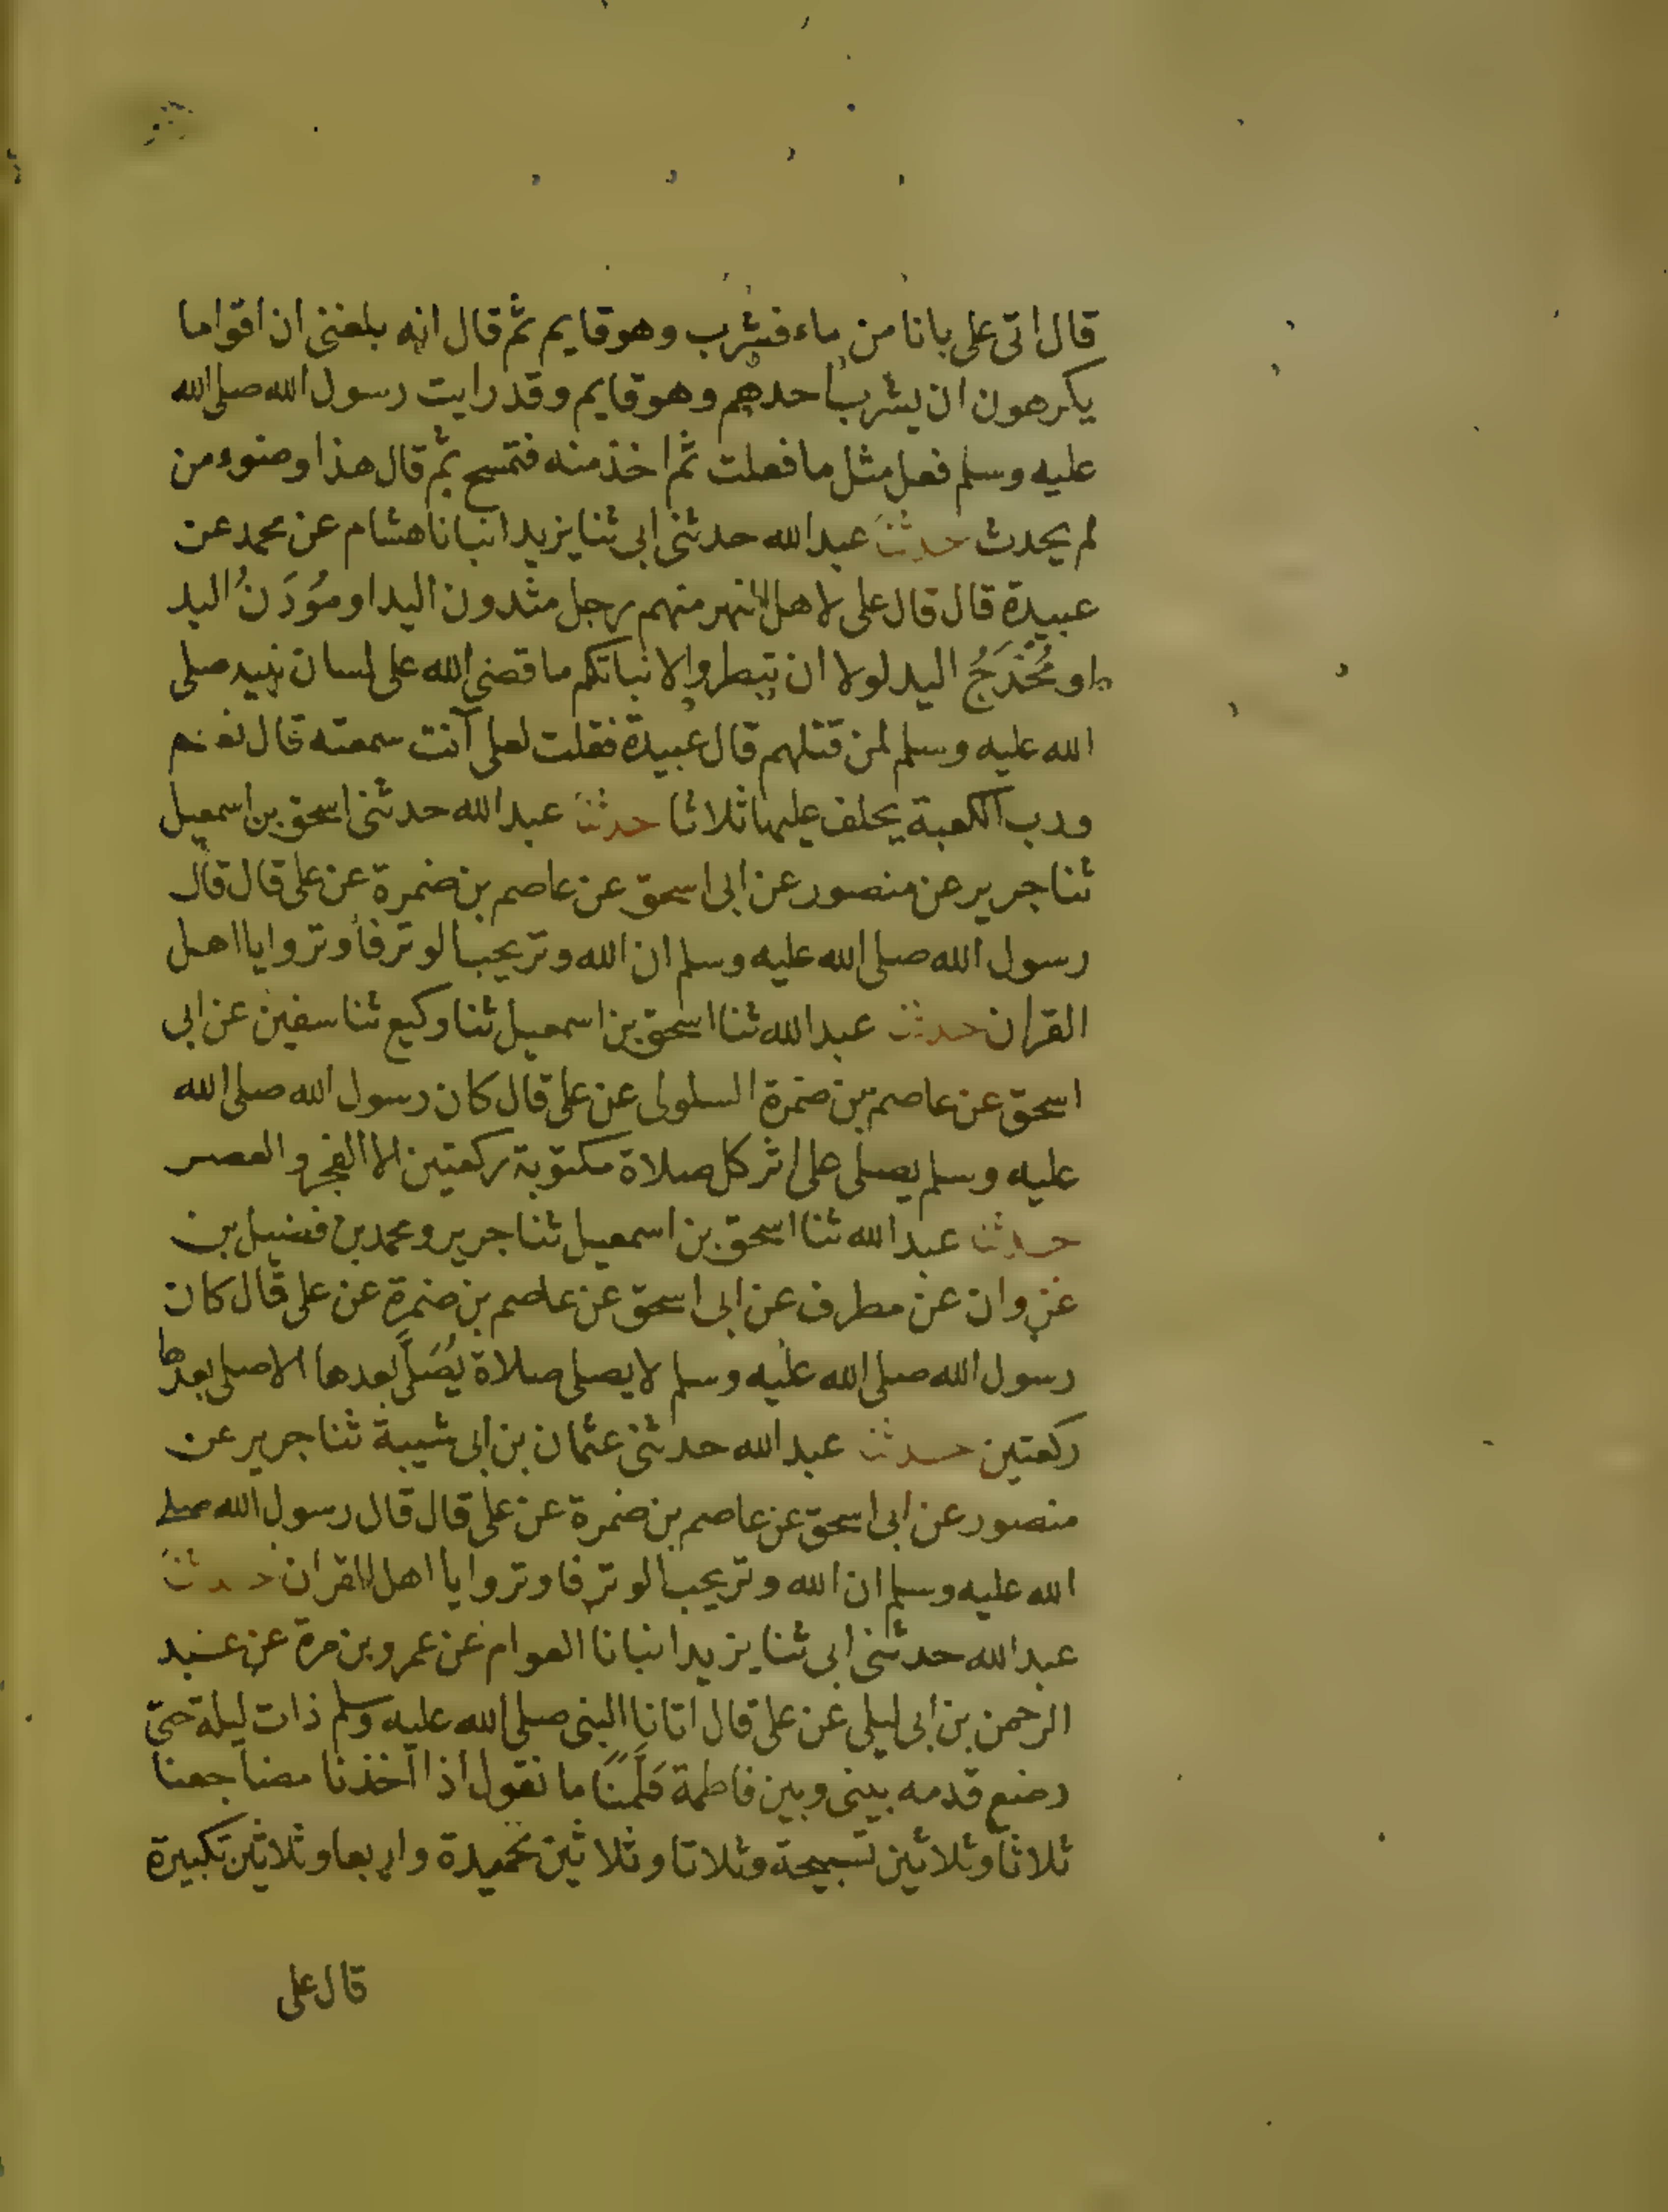 قال اتى على بانا من ماء فشرب وهو قايم ثم قال انه بلغنى ان اقواما
يكرهون ان يشرب احدهم وهو قايم وقد رايت رسول الله صلى الله
عليه وسلم فعل مثل ما فعلت ثم اخذ منه فتمسح ثم قال هذا وضوء من
لم يحدث حدثنا عبد الله حدثنى ابى ثنا يزيد انبانا هشام عن محمد عن
عبيدة قال قال على لاهل النهر منهم رجل مثدون اليد او مُوْدَنُ اليد
او مُخْدَجُ اليد لولا ان تبطروا لانباتكم ما قضى الله على لسان نبيه صلى
الله عليه وسلم لمن قتلهم قال عبيدة فقلت لعلى آنت سمعته قال نعم
ورب الكعبة يحلف عليها ثلاثا حدثنا عبد الله حدثنى اسحق بن اسمعيل
ثنا جرير عن منصور عن ابى اسحق عن عاصم بن ضمرة عن على قال قال
رسول الله صلى الله عليه وسلم ان الله وتر يحب الوتر فاوتروا يا اهل
القران حدثنا عبد الله ثنا اسحق بن اسمعيل ثنا وكيع ثنا سفين عن ابى
اسحق عن عاصم بن ضمرة السلولى عن على قال كان رسول الله صلى الله
عليه وسلم يصلى على اثر كل صلاة مكتوبة ركعتين الا الفجر والعصر
حدثنا عبد الله ثنا اسحق بن اسمعيل ثنا جرير ومحمد بن فضيل بن
غزوان عن مطرف عن ابى اسحق عن عاصم بن ضمرة عن على قال كان
رسول الله صلى الله عليه وسلم لا يصلى صلاة يُصَلَّى بعدها الا صلى بعدها
ركعتين حدثنا عبد الله حدثنى عثمان بن ابى شيبة ثنا جرير عن
منصور عن ابى اسحق عن عاصم بن ضمرة عن على قال قال رسول الله صلى
الله عليه وسلم ان الله وتر يحب الوتر فاوتروا يا اهل القران حدثنا
عبد الله حدثنى ابى ثنا يزيد انبانا العوام عن عمرو بن مرة عن عبد
الرحمن بن ابى ليلى عن على قال اتانا النبى صلى الله عليه وسلم ذات ليلة حتى
وضع قدمه بينى وبين فاطمة فَعَلَّمَنَا ما نقول اذا اخذنا مضاجعنا
ثلاثا وثلاثين تسبيحة وثلاثا وثلاثين تحميدة واربعا وثلاثين تكبيرة
قال على